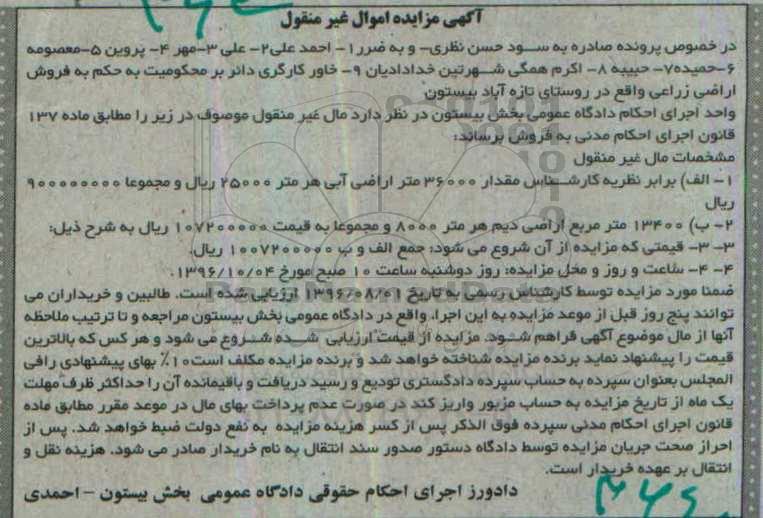 آگهی مزایده اموال غیر منقول
در خصوص پرونده صادره به سود حسن نظری- و به ضرر ۱- احمد علی ۲- علی ۳-مهر ۴- پروین ۵-معصومه
۶-حمیده ۷- حبیبه ۸- اکرم همگی شهرتین خدادادیان ۹- خاور کارگری دائر بر محکومیت به حکم به فروش
اراضی زراعی واقع در روستای تازه آباد بیستون
واحد اجرای احکام دادگاه عمومی بخش بیستون در نظر دارد مال غیر منقول موصوف در زیر را مطابق ماده ۱۳۷
قانون اجرای احکام مدنی به فروش برساند:
مشخصات مال غیر منقول
۱- الف) برابر نظریه کارشناس مقدار ۳۶۰۰۰ متر اراضی آبی هر متر ۲۵۰۰۰ ریال و مجموعا ۹۰۰۰۰۰۰۰۰
ریال
۲- ب) ۱۳۴۰۰ متر مربع اراضی دیم هر متر ۸۰۰۰ و مجموعا به قیمت ۱۰۷۲۰۰۰۰۰ ریال به شرح ذیل:
۳- ۳- قیمتی که مزایده از آن شروع می شود: جمع الف و ب ۱۰۰۷۲۰۰۰۰۰ ریال.
۴- ۴- ساعت و روز و محل مزایده: روز دوشنبه ساعت ۱۰ صبح مورخ ۱۳۹۶/۱۰/۰۴.
ضمنا مورد مزایده توسط کارشناس رسمی به تاریخ ۱۳۹۶/۰۸/۰۱ ارزیابی شده است. طالبین و خریداران می
توانند پنج روز قبل از موعد مزایده به این اجرا، واقع در دادگاه عمومی بخش بیستون مراجعه و تا ترتیب ملاحظه
آنها از مال موضوع آگهی فراهم شود. مزایده از قیمت ارزیابی شده شروع می شود و هر کس که بالاترین
قیمت را پیشنهاد نماید برنده مزایده شناخته خواهد شد و برنده مزایده مکلف است ۱۰٪ بهای پیشنهادی رافی
المجلس بعنوان سپرده به حساب سپرده دادگستری تودیع و رسید دریافت و باقیمانده آن را حداکثر ظرف مهلت
یک ماه از تاریخ مزایده به حساب مزبور واریز کند در صورت عدم پرداخت بهای مال در موعد مقرر مطابق ماده
قانون اجرای احکام مدنی سپرده فوق الذکر پس از کسر هزینه مزایده به نفع دولت ضبط خواهد شد. پس از
احراز صحت جریان مزایده توسط دادگاه دستور صدور سند انتقال به نام خریدار صادر می شود. هزینه نقل و
انتقال بر عهده خریدار است.
دادورز اجرای احکام حقوقی دادگاه عمومی بخش بیستون - احمدی